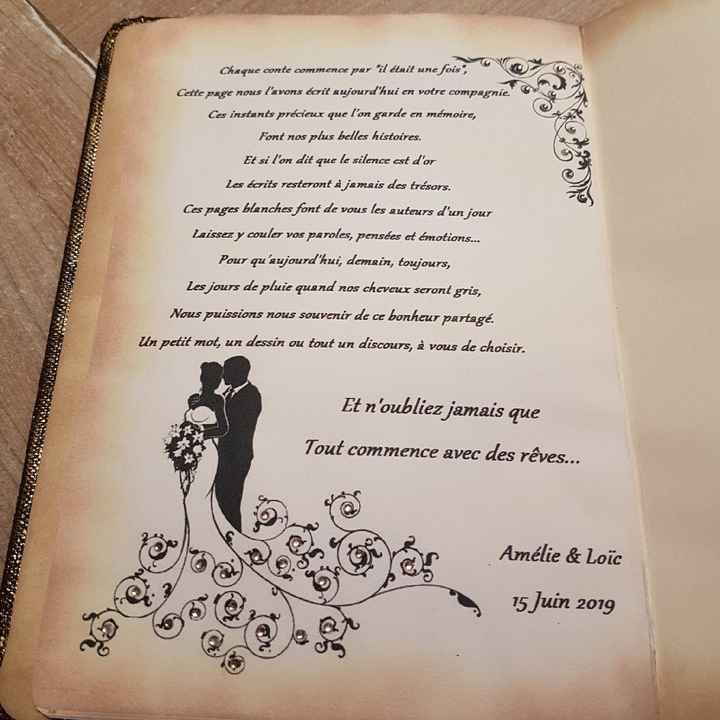 Chaque conte commence par "il était une fois",
Cette page nous l'avons écrit aujourd'hui en votre compagnie.
Ces instants précieux que l'on garde en mémoire,
Font nos plus belles histoires.
Et si l'on dit que le silence est d'or
Les écrits resteront à jamais des trésors.
Ces pages blanches font de vous les auteurs d'un jour
Laissez y couler vos paroles, pensées et émotions...
Pour qu'aujourd'hui, demain, toujours,
Les jours de pluie quand nos cheveux seront gris,
Nous puissions nous souvenir de ce bonheur partagé.
Un petit mot, un dessin ou tout un discours, à vous de choisir.
Et n'oubliez jamais que
Tout commence avec des rêves...
Amélie & Loïc
15 Juin 2019